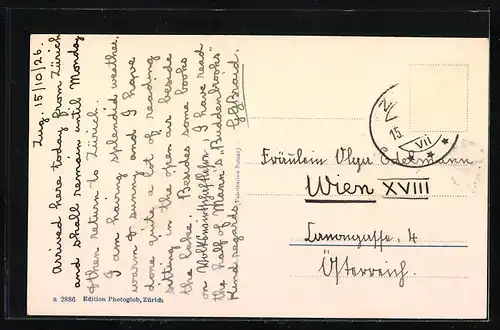 Zug. 15/10/26.
Arrived here today from Zürich
and shall remain until Monday
& then return to Zürich.
I am having splendid weather.
warm & sunny and I have
done quite a lot of reading
sitting in the open air beside
the lake. Besides some books
on Volkswirtschaftslehre, I have read
the half of Mann's "Buddenbrooks"
Kind regards.
Fräulein Olga Edelmann
Wien XVIII
Canongasse. 4
Österreich.
15.
VII
a 2886 Edition Photoglob, Zürich